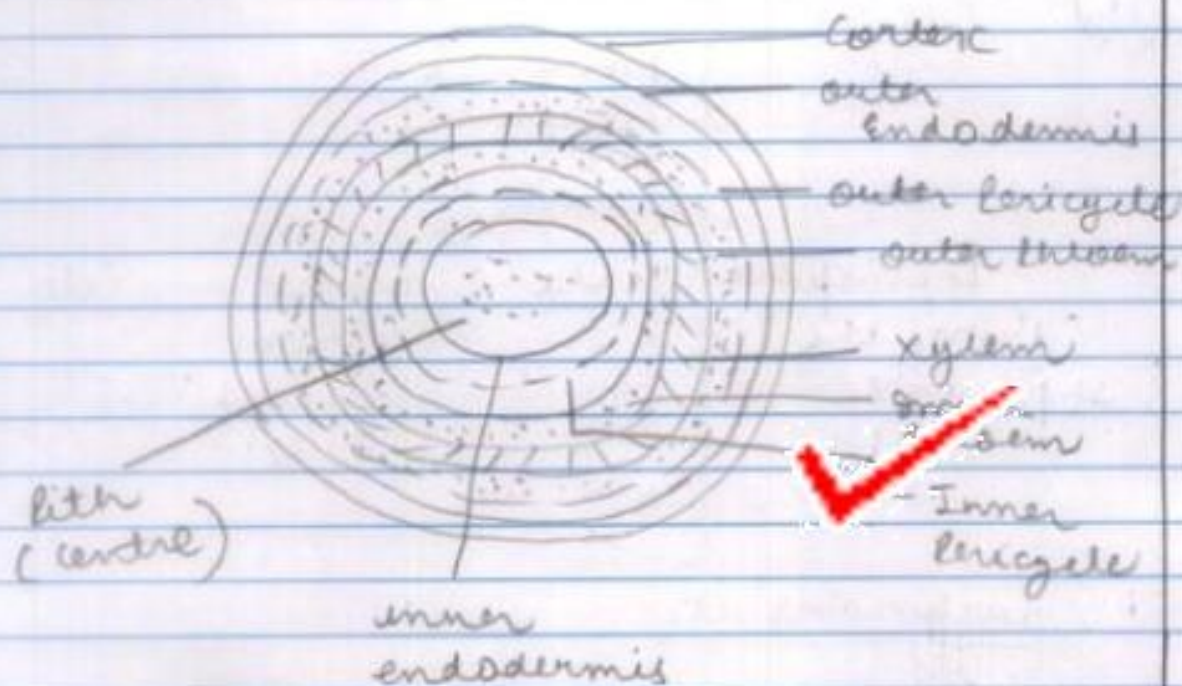 Cortex
outer
Endodermis
outer Pericycle
outer Phloem
Xylem
Inner
Pericycle
Pith
(centre)
inner
endodermis